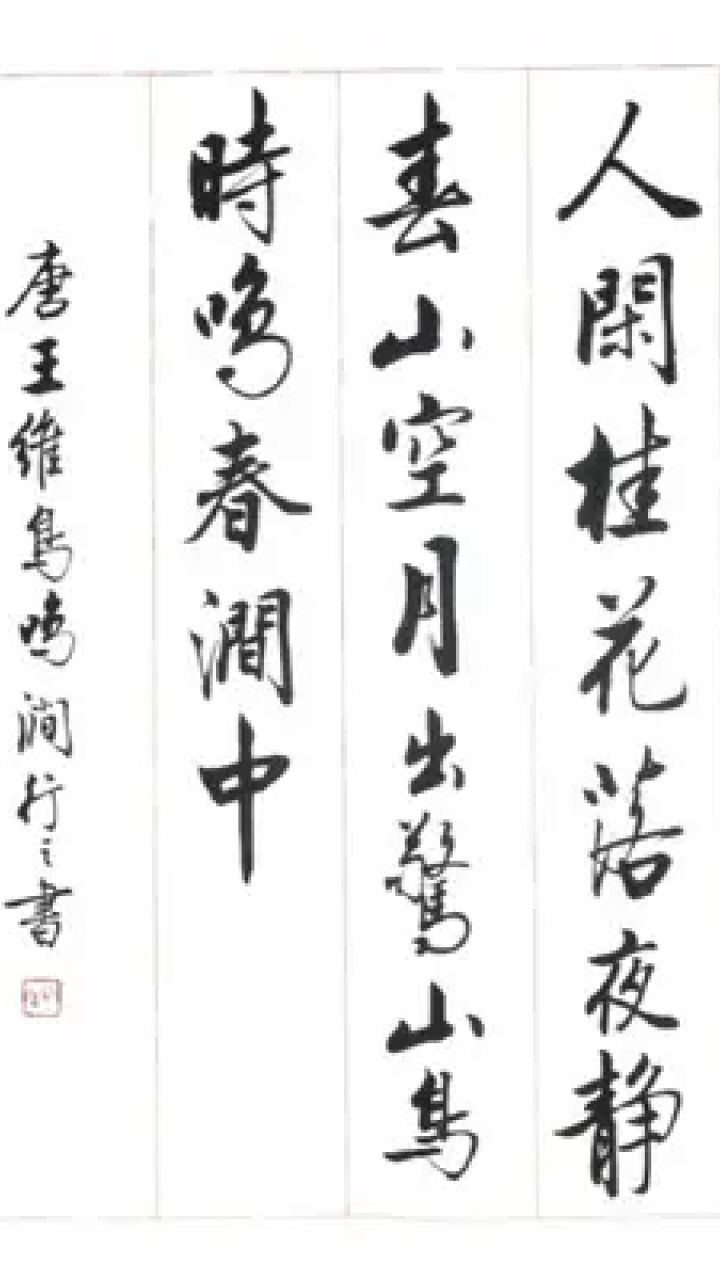 人閑桂花落夜静
春山空月出驚山鳥
時鳴春澗中
唐王維鳥鳴澗行之書